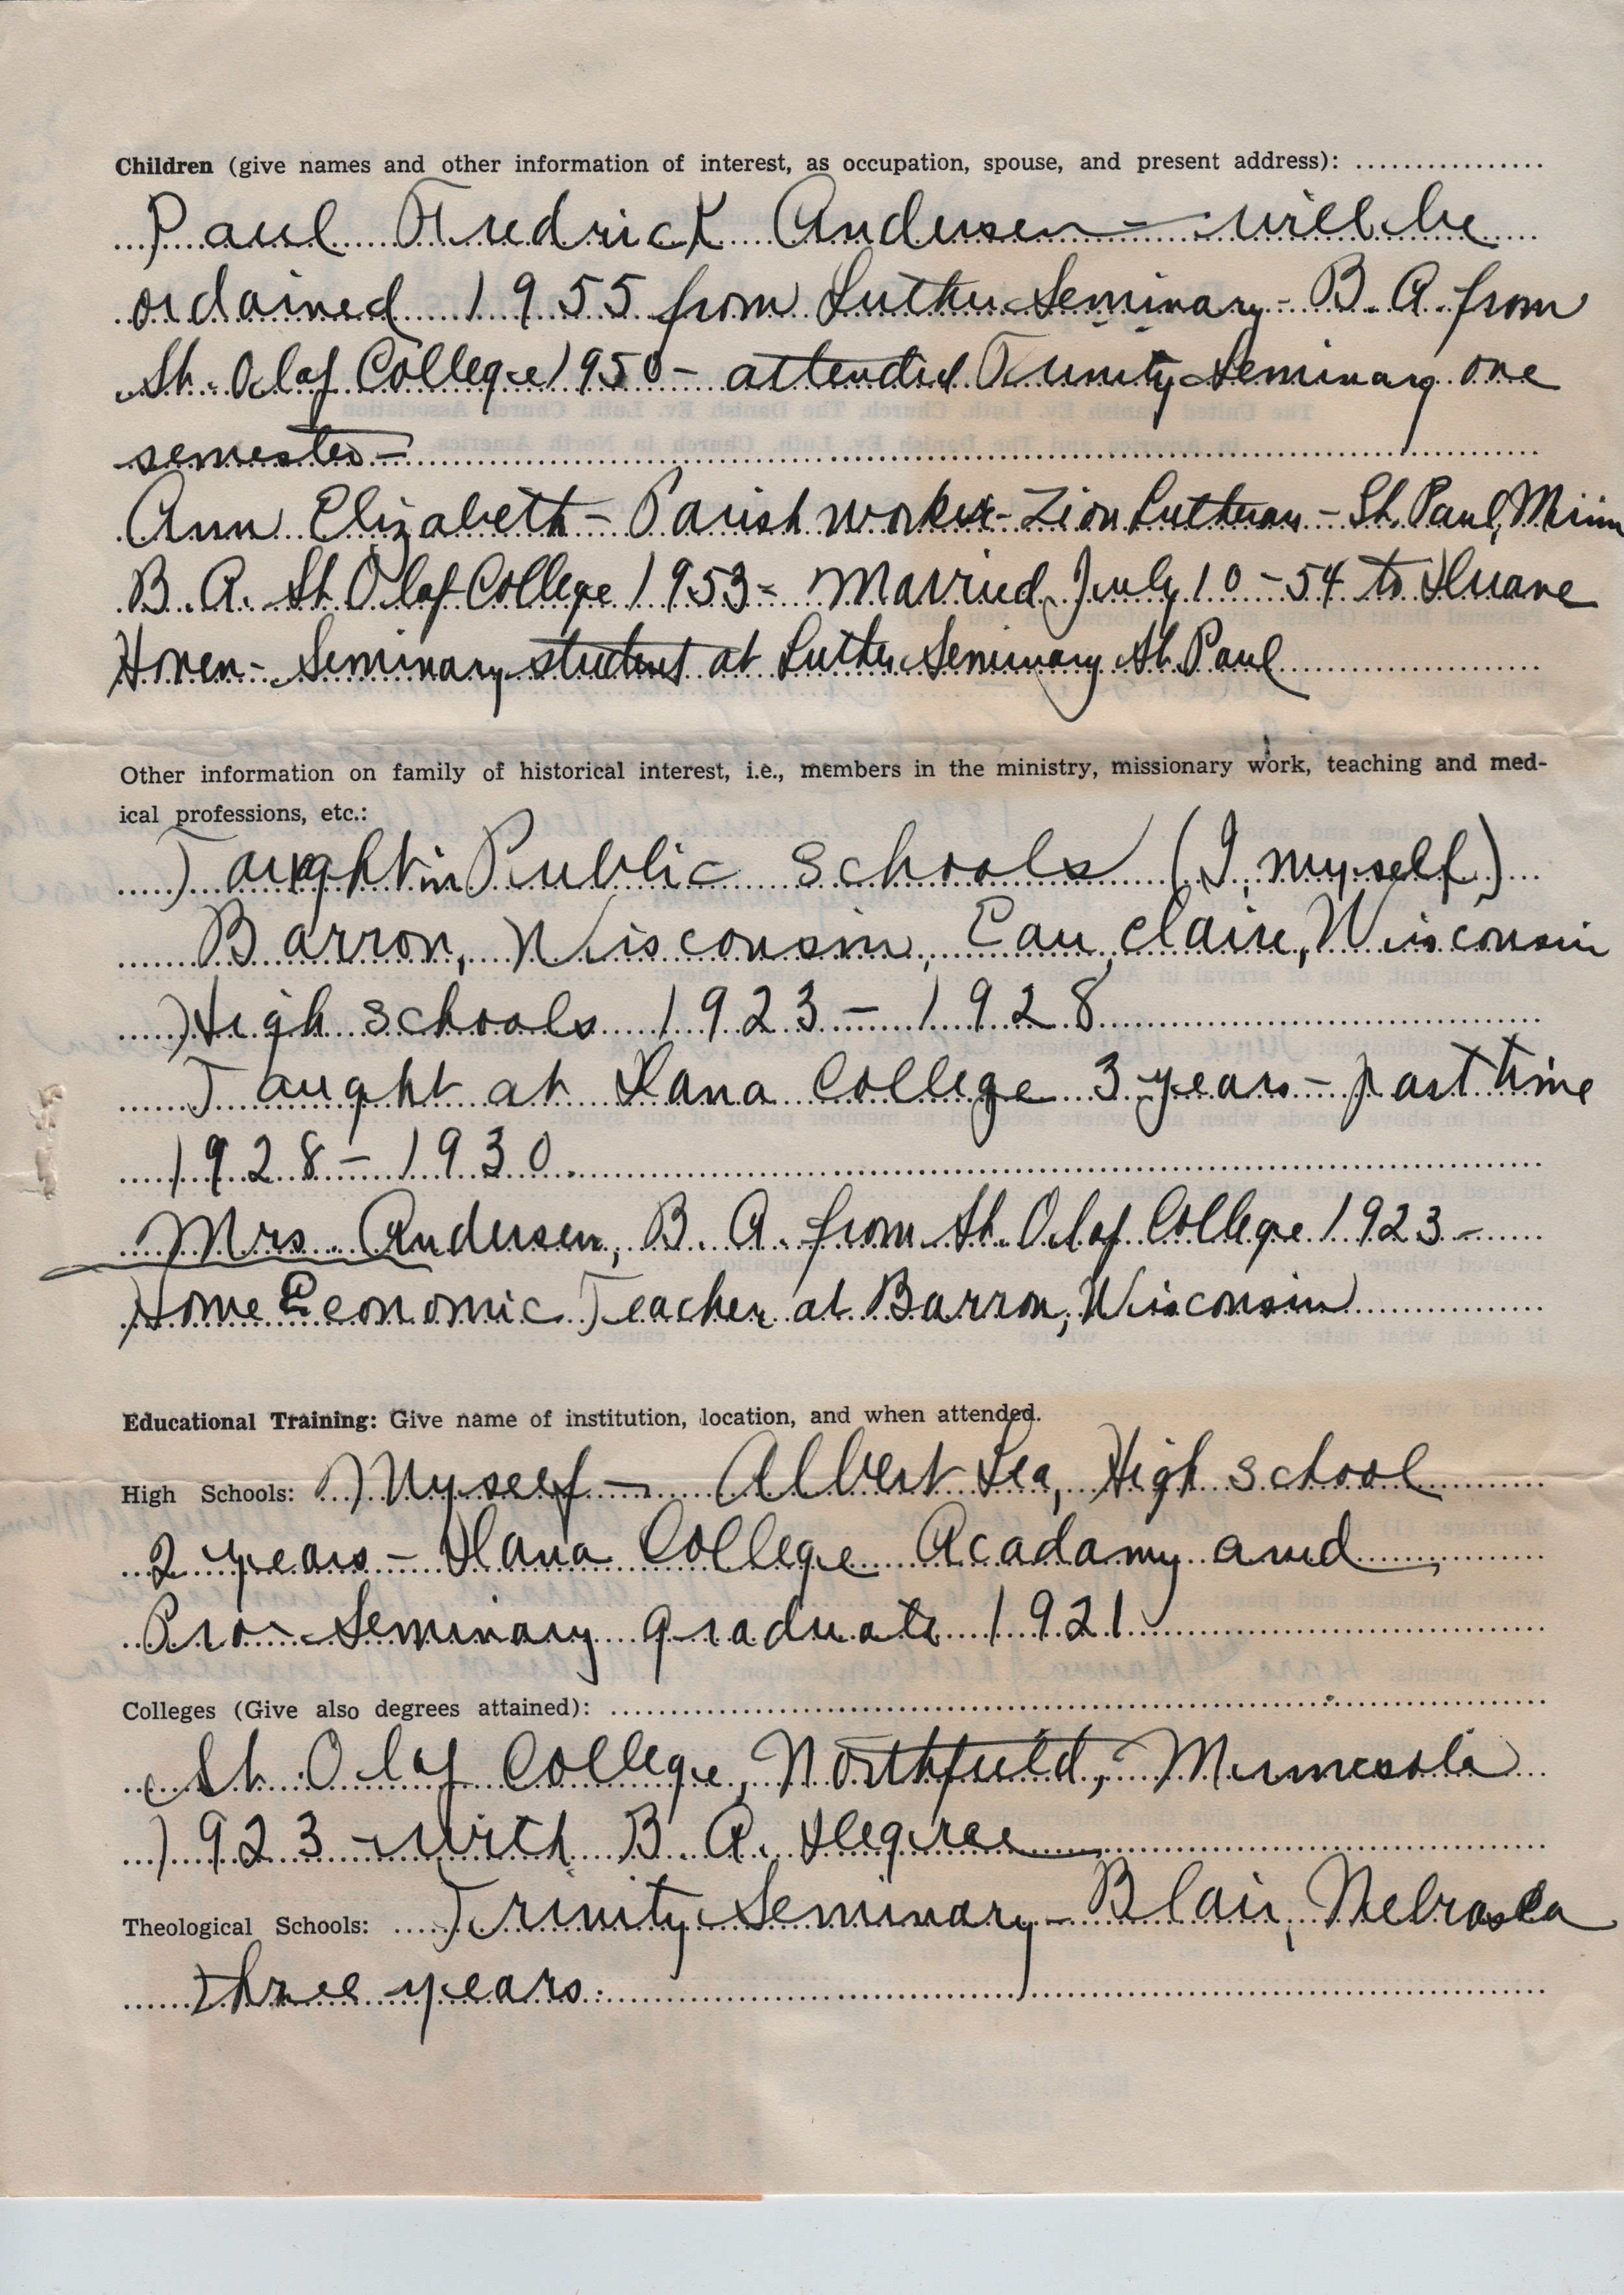 Children (give names and other information of interest, as occupation, spouse, and present address):
Paul Fredrick Andersen - will be
ordained 1955 from Luther Seminary - B.A. from
St. Olaf College 1950 - attended Trinity Seminary one
semester -
Ann Elizabeth - Parish worker - Zion Lutheran - St. Paul, Minn
B.A. St Olaf College 1953 - Married July 10 - 54 to Duane
Hoven - Seminary student at Luther Seminary St. Paul
Other information on family of historical interest, i.e., members in the ministry, missionary work, teaching and med-
ical professions, etc.:
Taught in Public Schools (I, myself)
Barron, Wisconsin, Eau Claire, Wisconsin
High schools 1923 - 1928
Taught at Dana College 3 years - part time
1928 - 1930
Mrs. Andersen, B.A. from St. Olaf College 1923 -
Home Economic Teacher at Barron, Wisconsin
Educational Training: Give name of institution, location, and when attended.
High Schools: Myself - Albert Lea, High school
2 years - Dana College Acadamy and
Pro-Seminary graduate 1921
Colleges (Give also degrees attained):
St. Olaf College, Northfield, Minnesota
1923 - with B.A. Degree
Theological Schools: Trinity Seminary - Blair, Nebraska
three years.